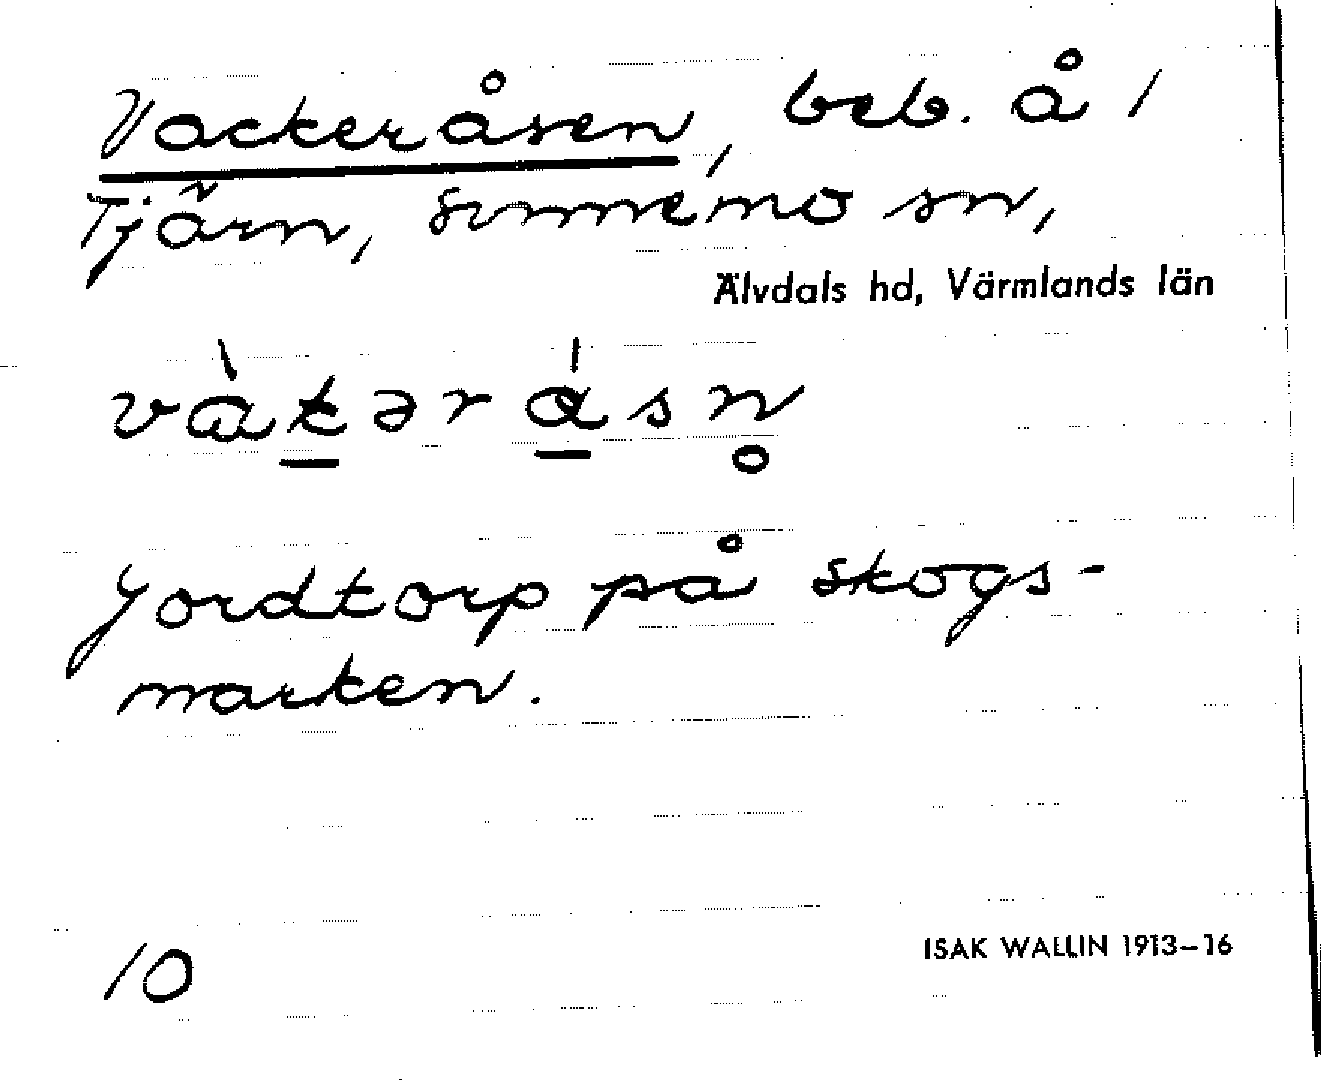 Vackeråsen, beb. å 1
Tjärn, Sunnemo sn,
Älvdals hd, Värmlands län
vàkərásn̥
Jordtorp på skogs-
marken.
10
ISAK WALLIN 1913–16